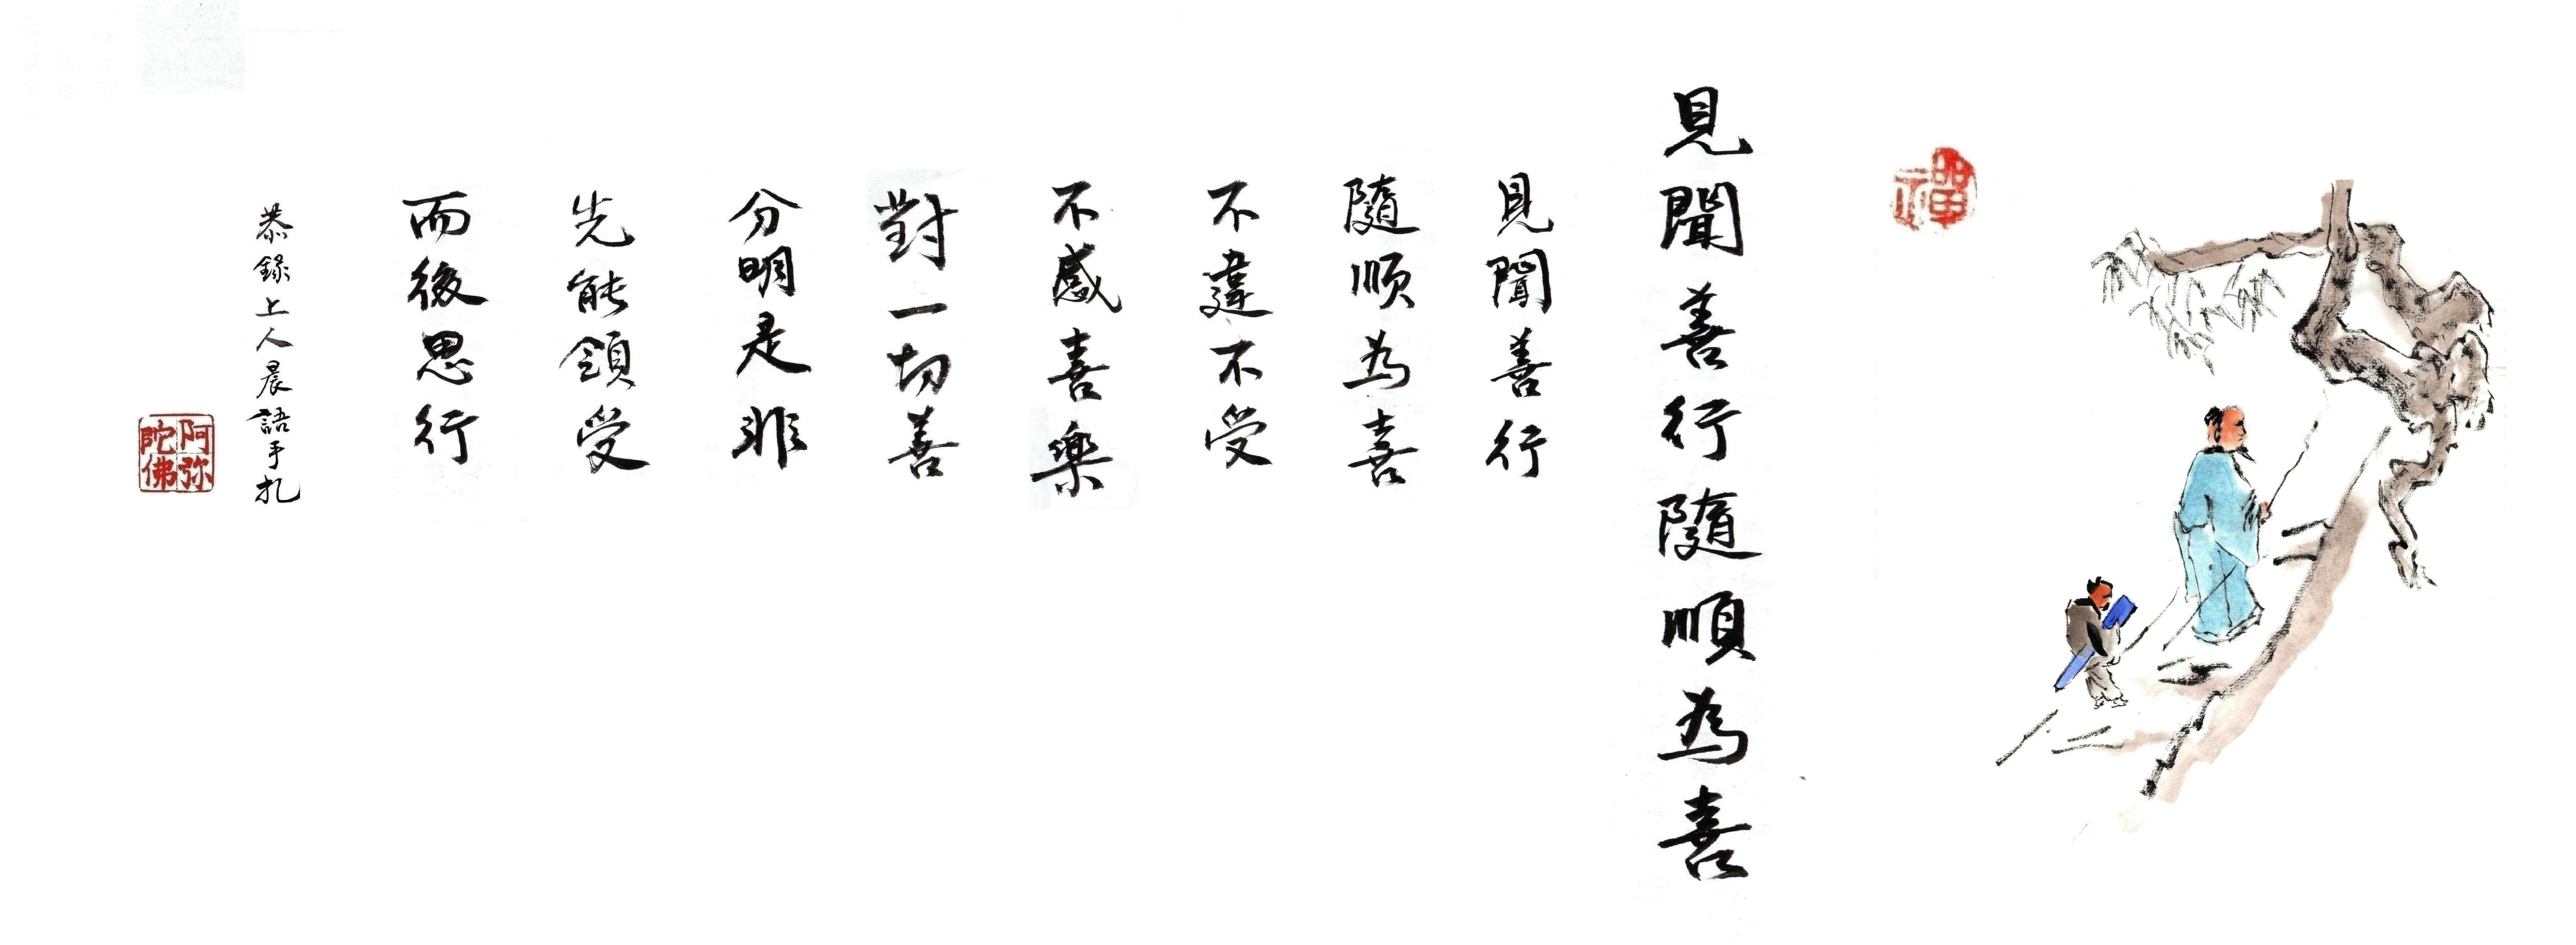 禪
見聞善行隨順為喜
見聞善行
隨順為喜
不違不受
不感喜樂
對一切善
分明是非
先能領受
而後思行
恭錄上人晨語手扎
阿弥
陀佛